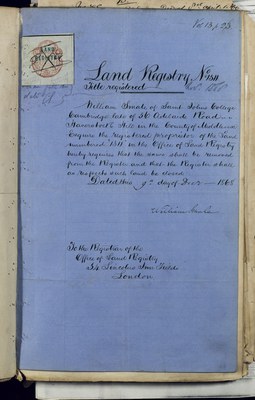 Vol 13 p 23
LAND REGISTRY
Land Registry No 1511
Title registered
William Soule of Saint Johns College
Cambridge late of 36 Adelaide Road
Haverstock Hill in the County of Middlesex
Esquire the registered proprietor of the Land
numbered 1511 in the Office of Land Registry
hereby requires that the same shall be removed
from the Register and that the Register shall
as respects such Land be closed
Dated this 9th day of 1868
William
To the Registrar of the
Office of Land Registry
34 Lincolns Inn Fields
London